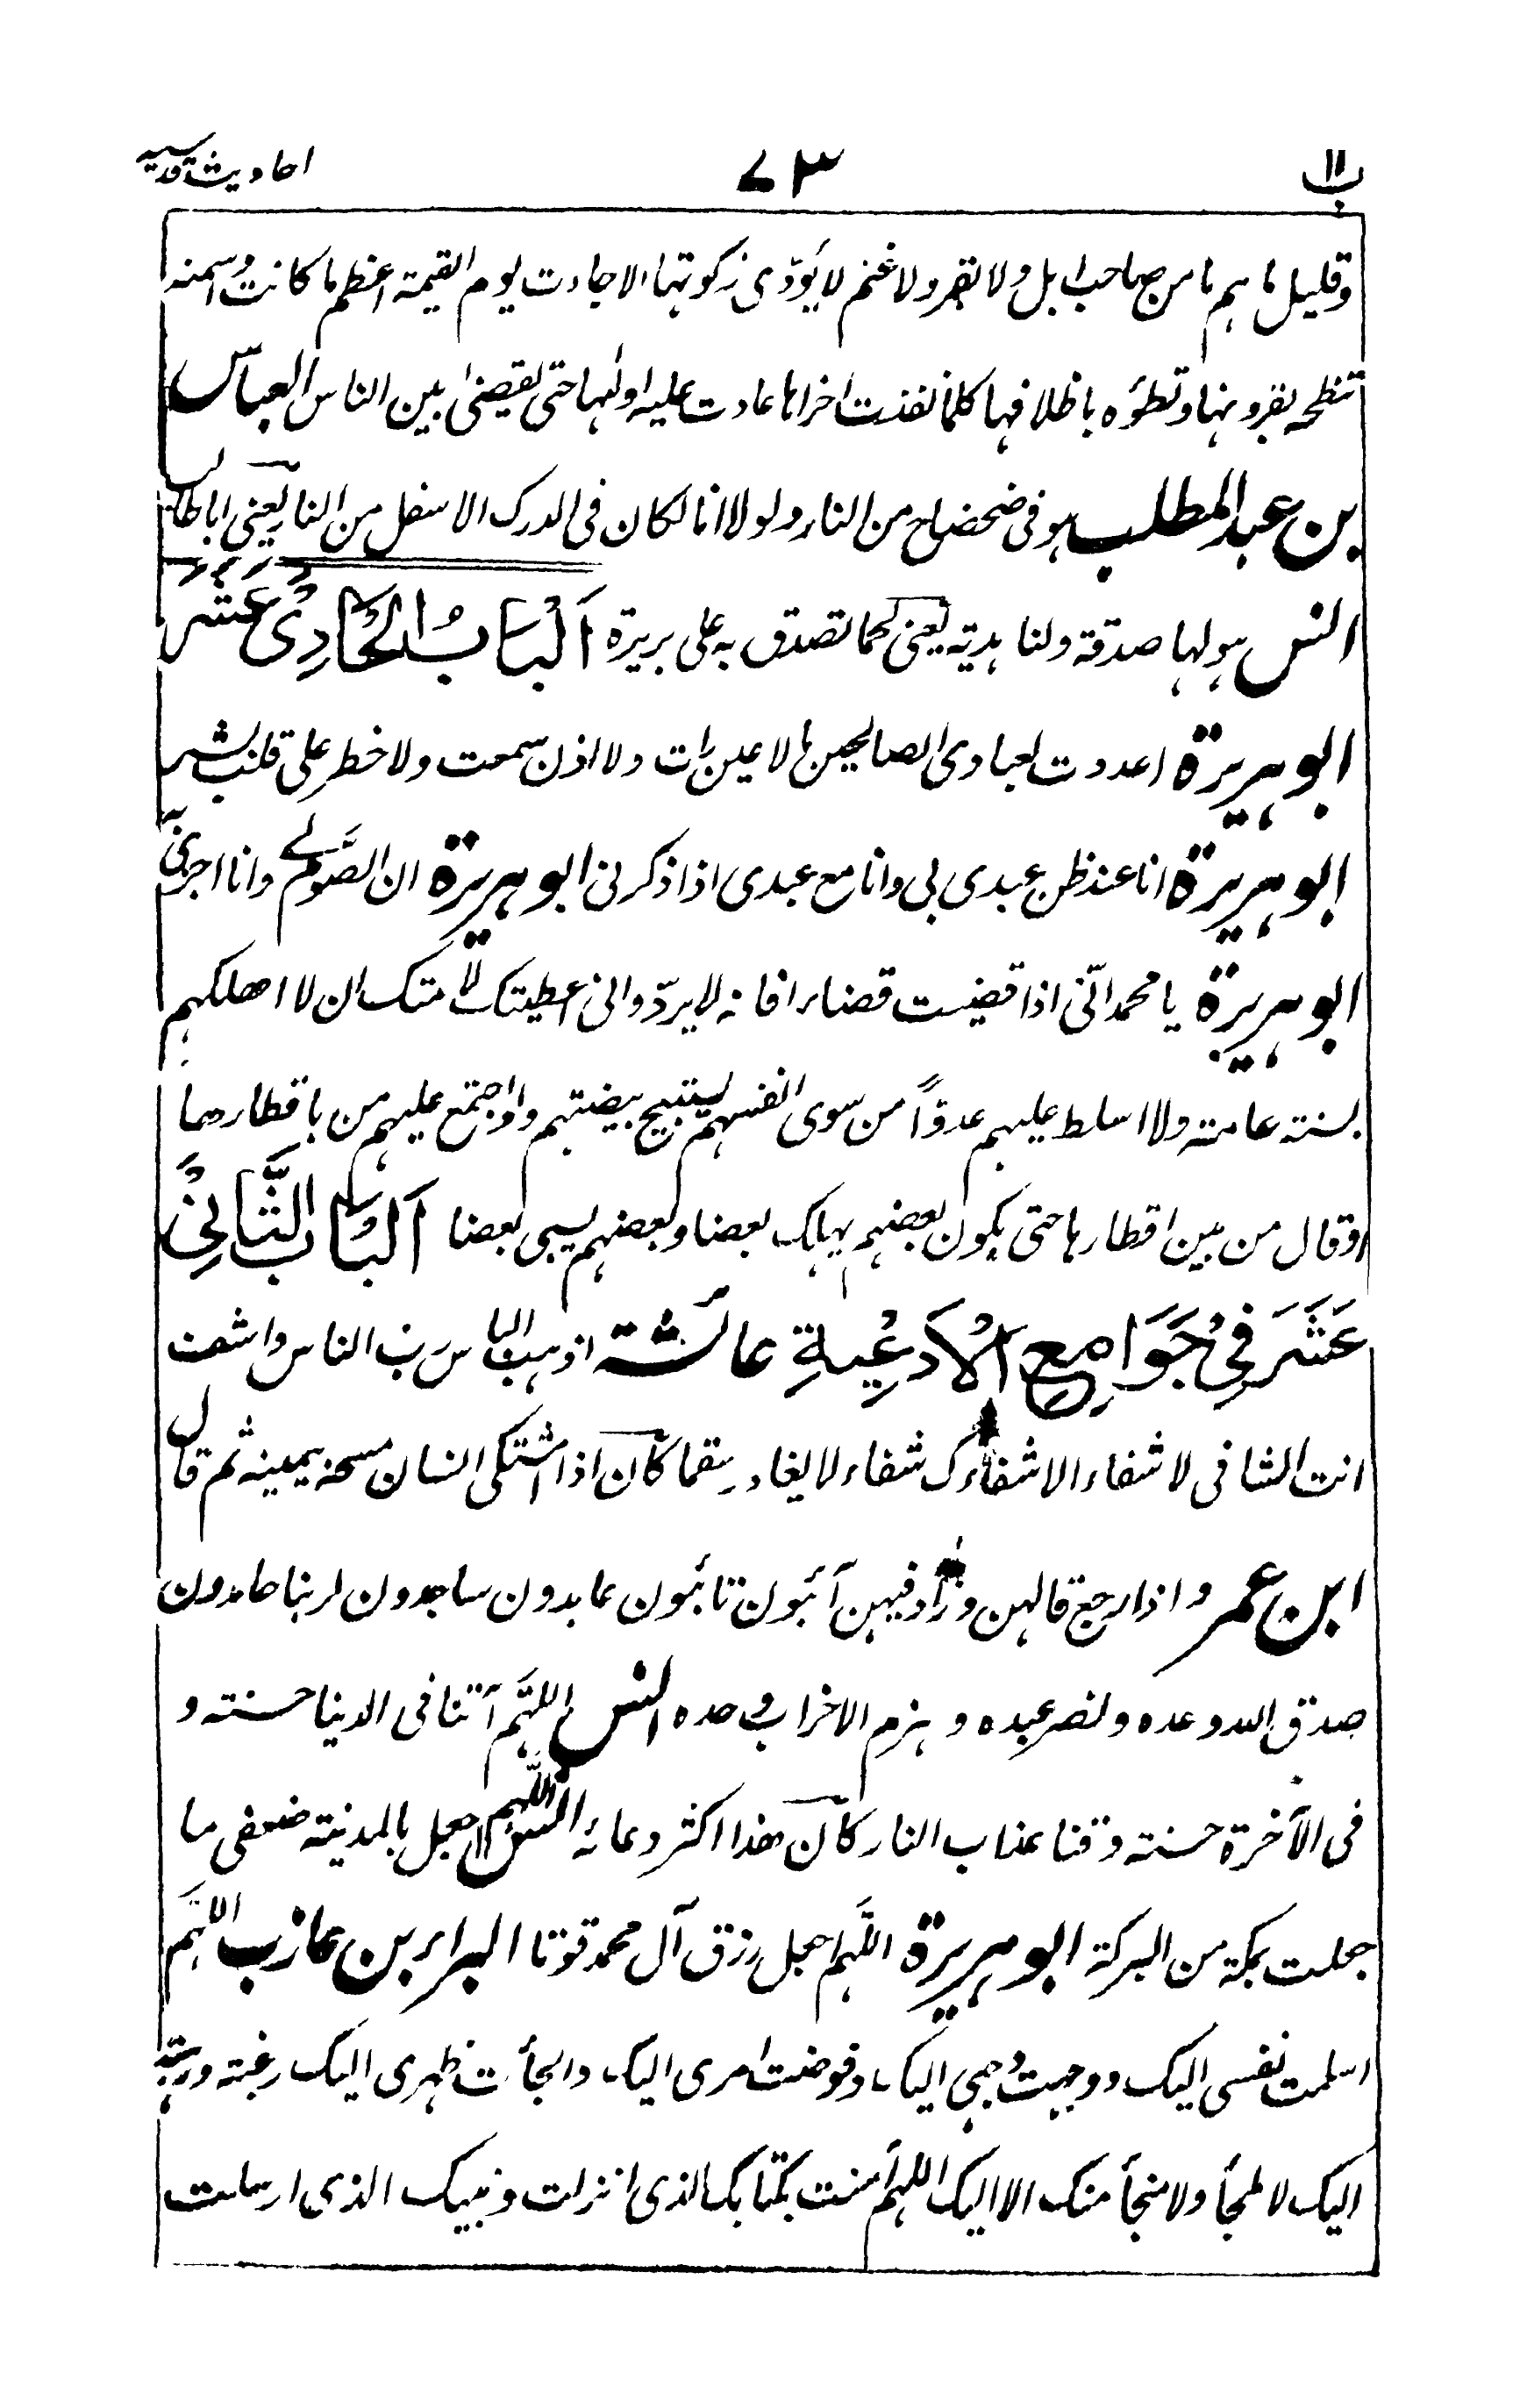 ب ١١
٧٣
احادیث قدسیہ
وقلیل ما ہم ما من صاحب ابل ولا بقر ولا غنم لا یؤدّی زکوتہا الا جاءت یوم القیمۃ اعظم ما کانت واسمنہ
تنطحہ بقرونہا وتطؤہ باظلافہا کلما نفذت اخراہا عادت علیہ اولٰہا حتی یقضیٰ بین الناس العباس
بن عبد المطلب ہو فی ضحضاح من النار ولولا انا لکان فی الدرک الاسفل من النار یعنی اباطالب
انس ہو لہا صدقۃ ولنا ہدیۃ یعنی لحما تصدق بہ علی بریرۃ اَلْبَابُ الْحَادِیْ عَشَرَ
ابو ہریرۃ اعددت لعبادی الصالحین ما لا عین رات ولا اذن سمعت ولا خطر علی قلب بشر
ابو ہریرۃ انا عند ظن عبدی بی وانا مع عبدی اذا ذکرنی ابو ہریرۃ ان الصَّوم لی وانا اجزی بہ
ابو ہریرۃ یا محمد انّی اذا قضیت قضاء فانہ لا یردّ وانی اعطیتک لامتک ان لا اھلکہم
بسنۃ عامۃ ولا اسلط علیہم عدوًّا من سوی انفسہم یستبیح بیضتہم ولو اجتمع علیہم من باقطارھا
او قال من بین اقطارہا حتی یکون بعضہم یہلک بعضا وبعضہم یسبی بعضا اَلْبَابُ الثَّانِیْ
عَشَرَ فِیْ جَوَامِعِ الْاَدْعِیَۃِ عائشۃ اذہب الباس رب الناس واشف
انت الشافی لا شفاء الا شفاءک شفاء لا یغادر سقما کان اذا اشتکی انسان مسحہ بیمینہ ثم قال
ابن عمر و اذا رجع قالہن وزاد فیہن آئبون تائبون عابدون ساجدون لربنا حامدون
صدق اللہ وعدہ ونصر عبدہ و ہزم الاحزاب وحدہ انس اللہم آتنا فی الدنیا حسنۃ و
فی الآخرۃ حسنۃ وقنا عذاب النار کان ھذا اکثر دعائہ انس اللہم اجعل بالمدینۃ ضعفی ما
جعلت بمکۃ من البرکۃ ابو ہریرۃ اللہم اجعل رزق آل محمد قوتا البراء بن عازب اللہم
اسلمت نفسی الیک ووجہت وجہی الیک وفوضت امری الیک والجأت ظہری الیک رغبۃ ورہبۃ
الیک لا ملجأ ولا منجأ منک الا الیک اللہم آمنت بکتابک الذی انزلت ونبیک الذی ارسلت